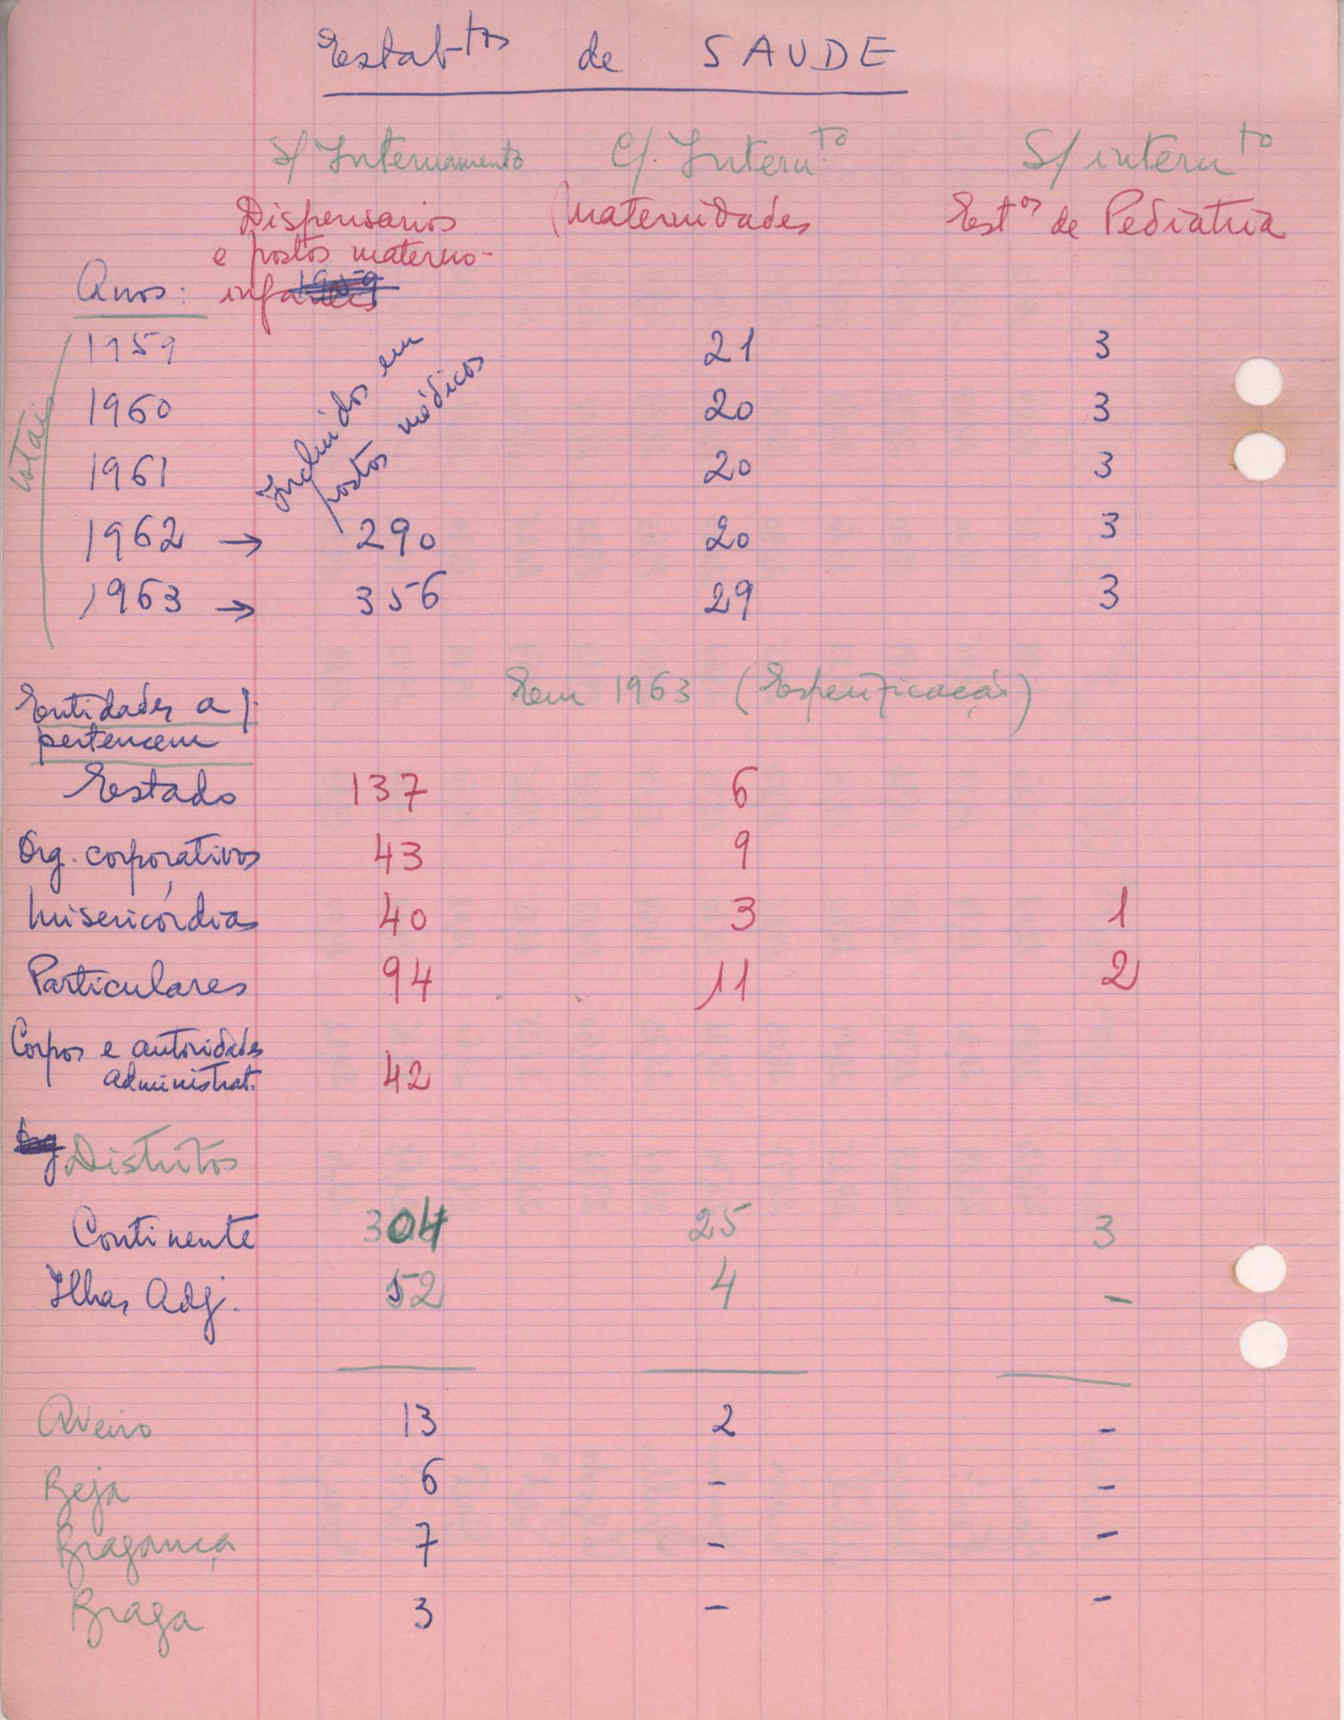 Estab-tos de SAUDE
S/ Internamento C/. Intern.to S/ intern to
Dispensarios Maternidades Est.os de Pediatria
e postos materno-
Anos: infantis
1959 21 3
1960 20 3
1961 20 3
1962 → 290 20 3
1963 → 356 29 3
Incluidos em
postos médicos
totais
Em 1963 (Especificação)
Entidades a q.
pertencem
Estado 137 6
Org. corporativos 43 9
Misericórdias 40 3 1
Particulares 94 11 2
Corpos e autoridades
administrat. 42
Distritos
Continente 304 25 3
Ilhas Adj. 52 4 -
Aveiro 13 2 -
Beja 6 - -
Bragança 7 - -
Braga 3 - -